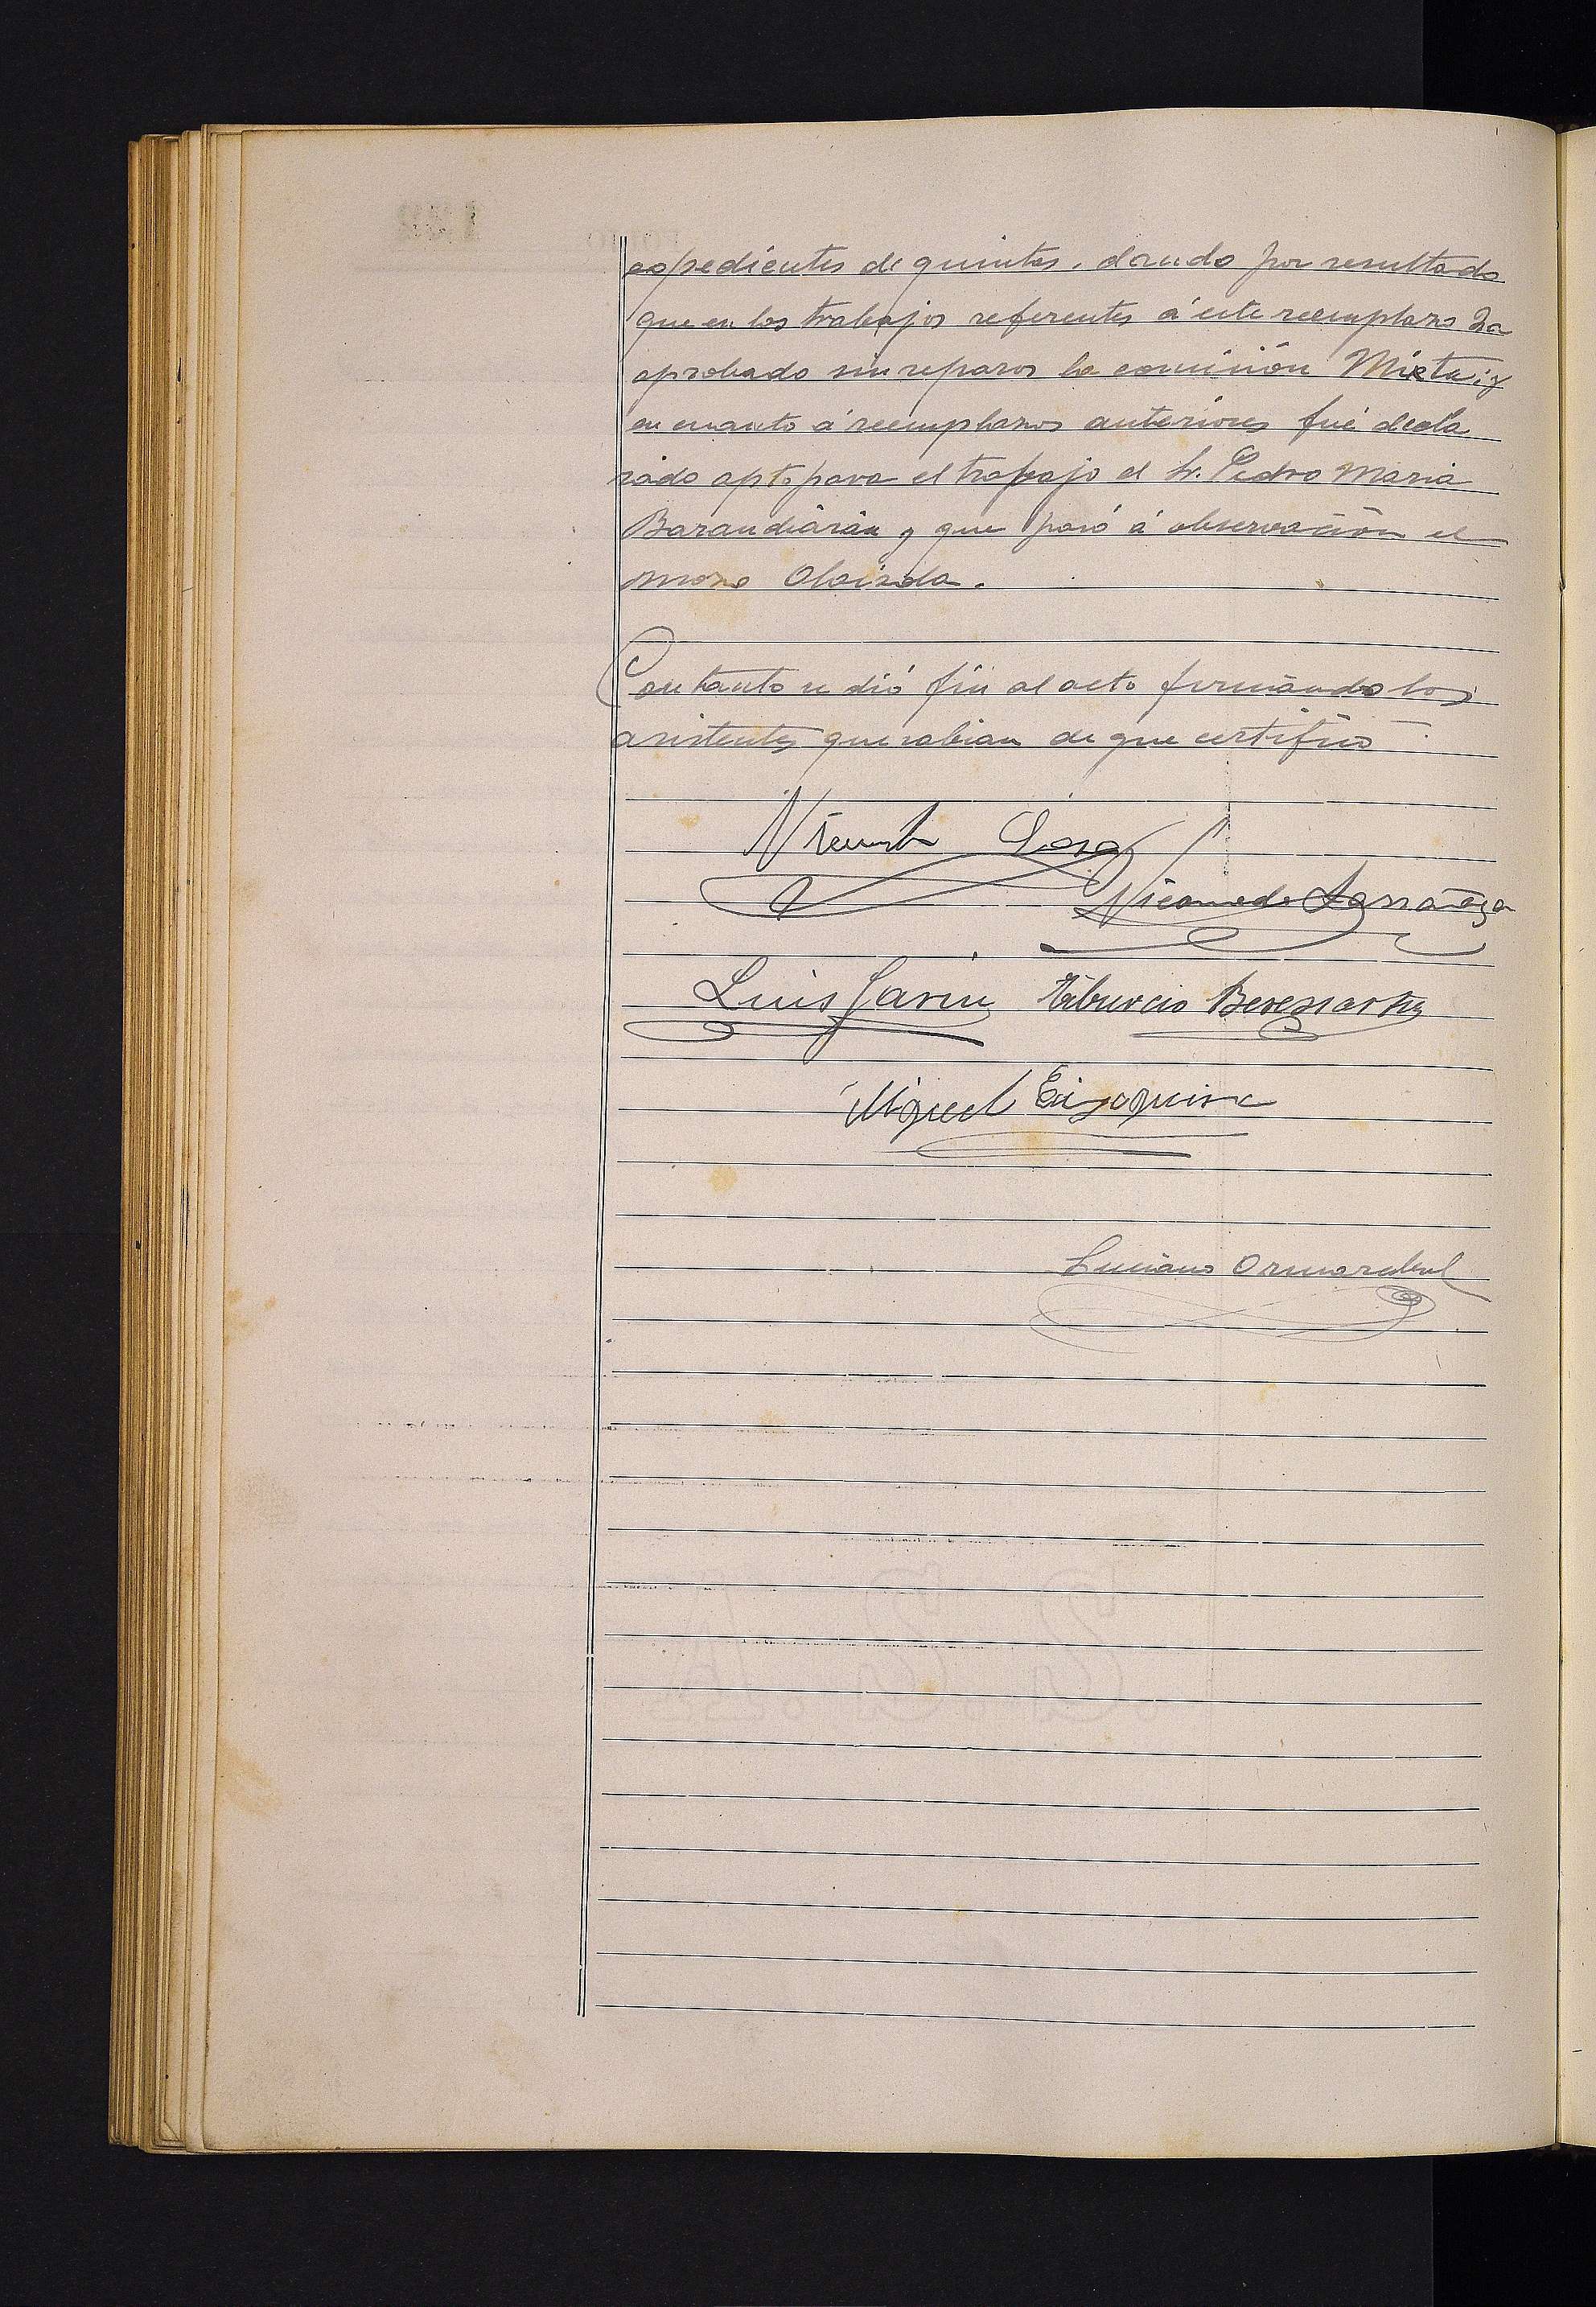 expedientes de quintas, dando por resultado
que en los trabajos referentes á este reemplazo ha
aprobado sin reparos la comisión Mixta; y
en cuanto á reemplazos anteriores fué decla
rado apto para el trabajo el Sr. Pedro Maria
Barandiarán y que pasó á observación el
mozo Olaizola.
Con tanto se dió fin al acto firmando los
asistentes que sabian de que certifico
Vicente Lasa
Nicomedes Larrañaga
Luis Garin Tiburcio Beresiartu
Miguel Eizaguirre
Luciano Ormazabal